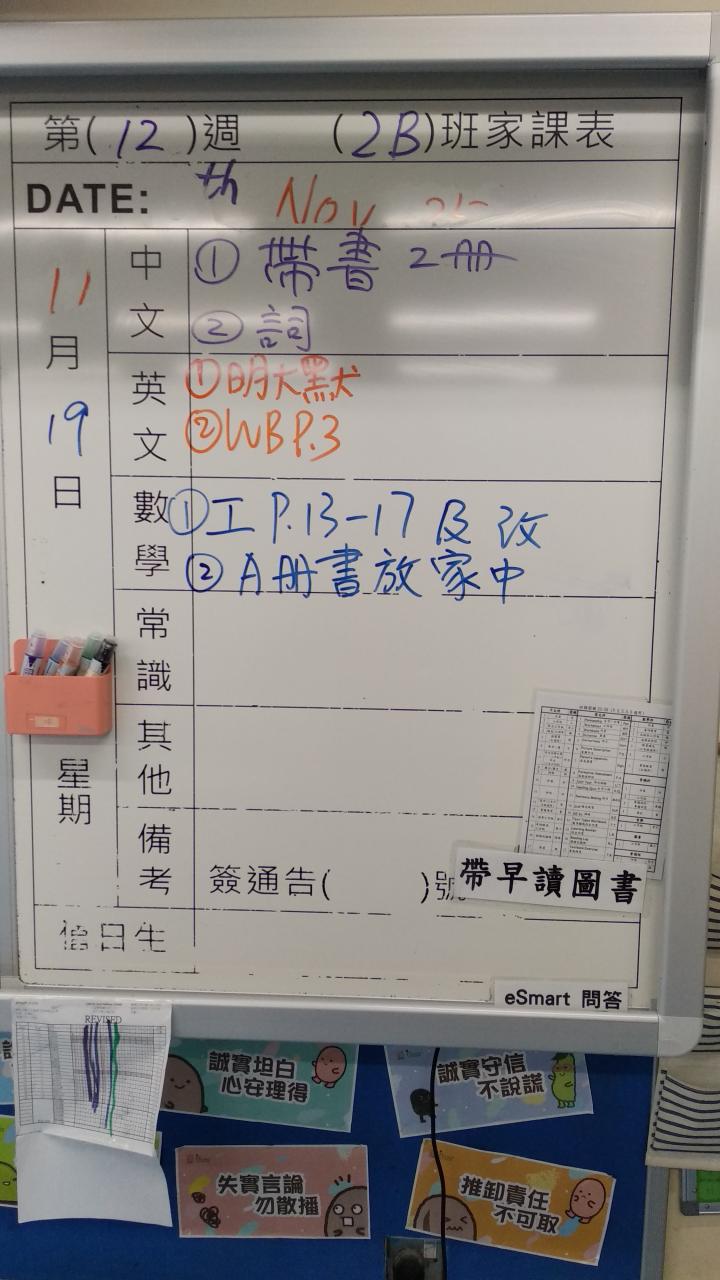 第(12)週 (2B)班家課表
DATE: th Nov 25
11月19日
星期
中文
① 帶書 2冊
② 詞
英文
①明大默
②WB P.3
數學
①工 P.13-17 及 改
② A冊書放家中
常識
其他
備考
簽通告( )號
帶早讀圖書
值日生
eSmart 問答
REVISED
誠實坦白
心安理得
誠實守信
不說謊
失實言論
勿散播
推卸責任
不可取